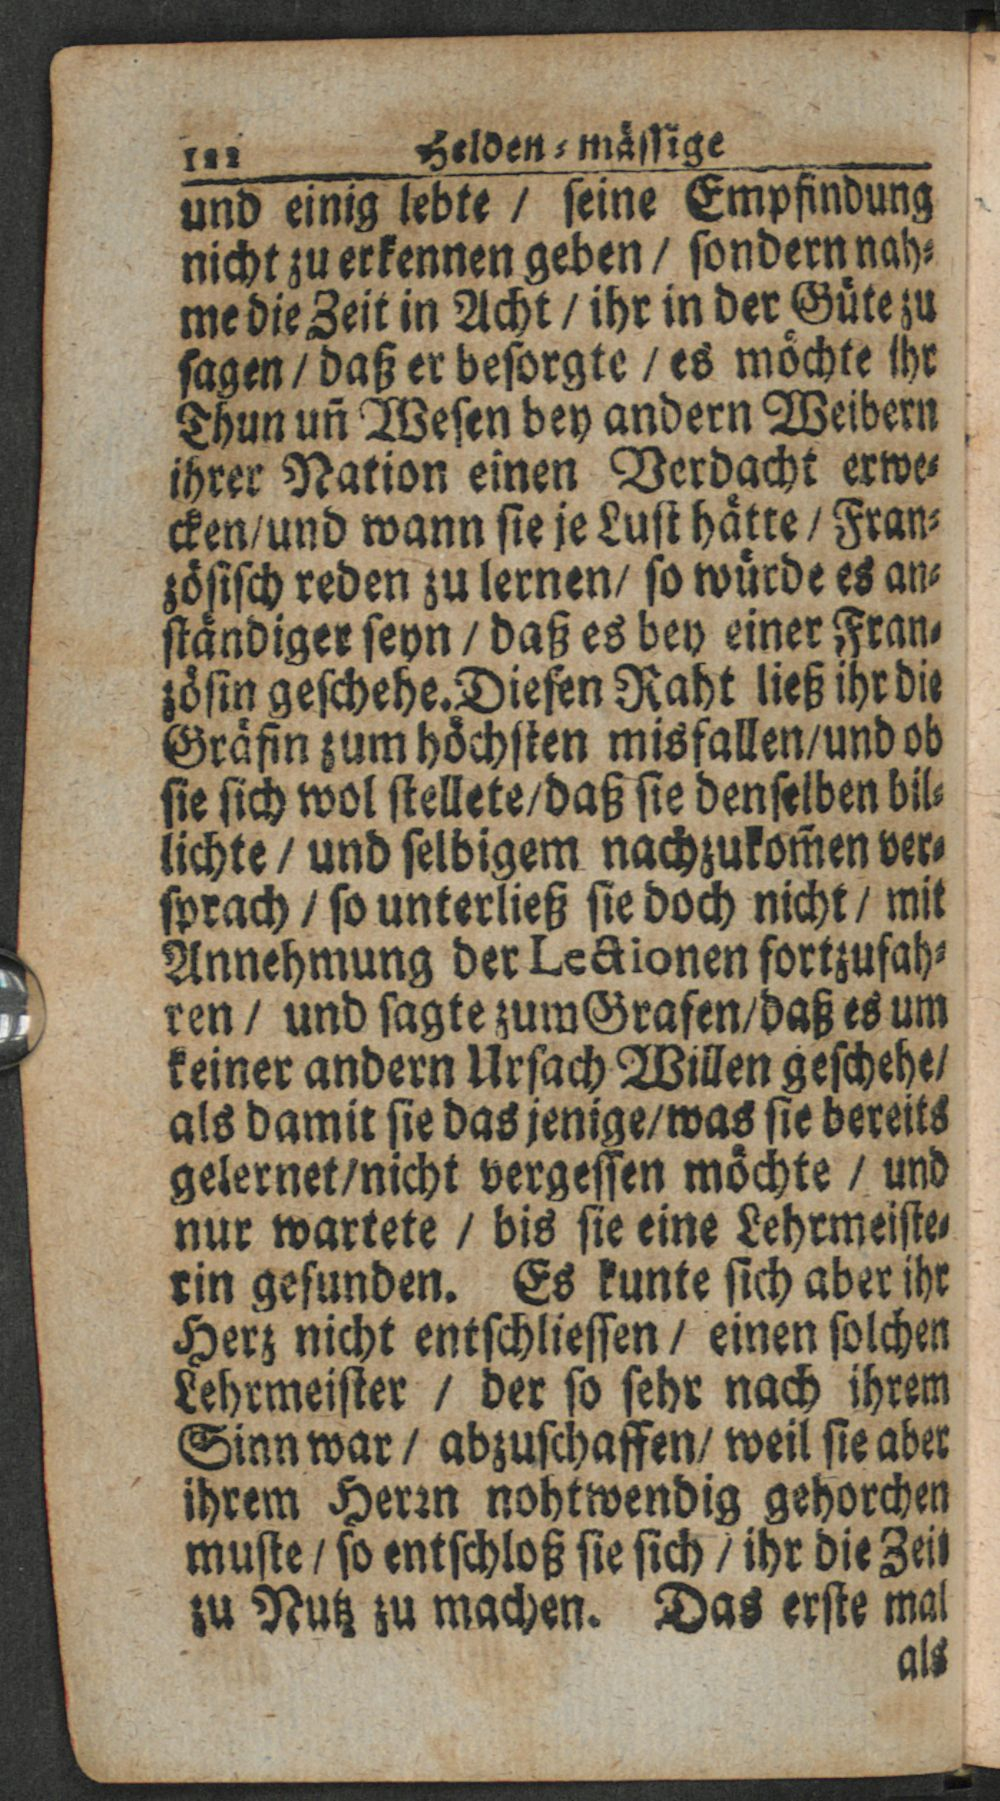 122 Helden⸗mässige
und einig lebte / ſeine Empfindung
nicht zu erkennen geben / ſondern nah⸗
me die Zeit in Acht / ihr in der Güte zu
ſagen / daß er beſorgte / es möchte ihr
Thun uñ Weſen bey andern Weibern
ihrer Nation einen Verdacht erwe⸗
cken/und wann ſie je Luſt hätte / Fran⸗
zöſiſch reden zu lernen/ ſo würde es an⸗
ſtändiger ſeyn / daß es bey einer Fran⸗
zöſin geſchehe. Dieſen Raht ließ ihr die
Gräfin zum höchſten misfallen/und ob
ſie ſich wol ſtellete/daß ſie denſelben bil⸗
lichte / und ſelbigem nachzukom̃en ver⸗
ſprach / ſo unterließ ſie doch nicht / mit
Annehmung der Lectionen fortzufah⸗
ren / und ſagte zum Grafen/daß es um
keiner andern Urſach Willen geſchehe/
als damit ſie das jenige/was ſie bereits
gelernet/nicht vergeſſen möchte / und
nur wartete / bis ſie eine Lehrmeiſte⸗
rin gefunden. Es kunte ſich aber ihr
Herz nicht entſchlieſſen / einen ſolchen
Lehrmeiſter / der ſo ſehr nach ihrem
Sinn war / abzuſchaffen/ weil ſie aber
ihrem Herꝛn nohtwendig gehorchen
muſte / ſo entſchloß ſie ſich / ihr die Zeit
zu Nutz zu machen. Das erſte mal
als